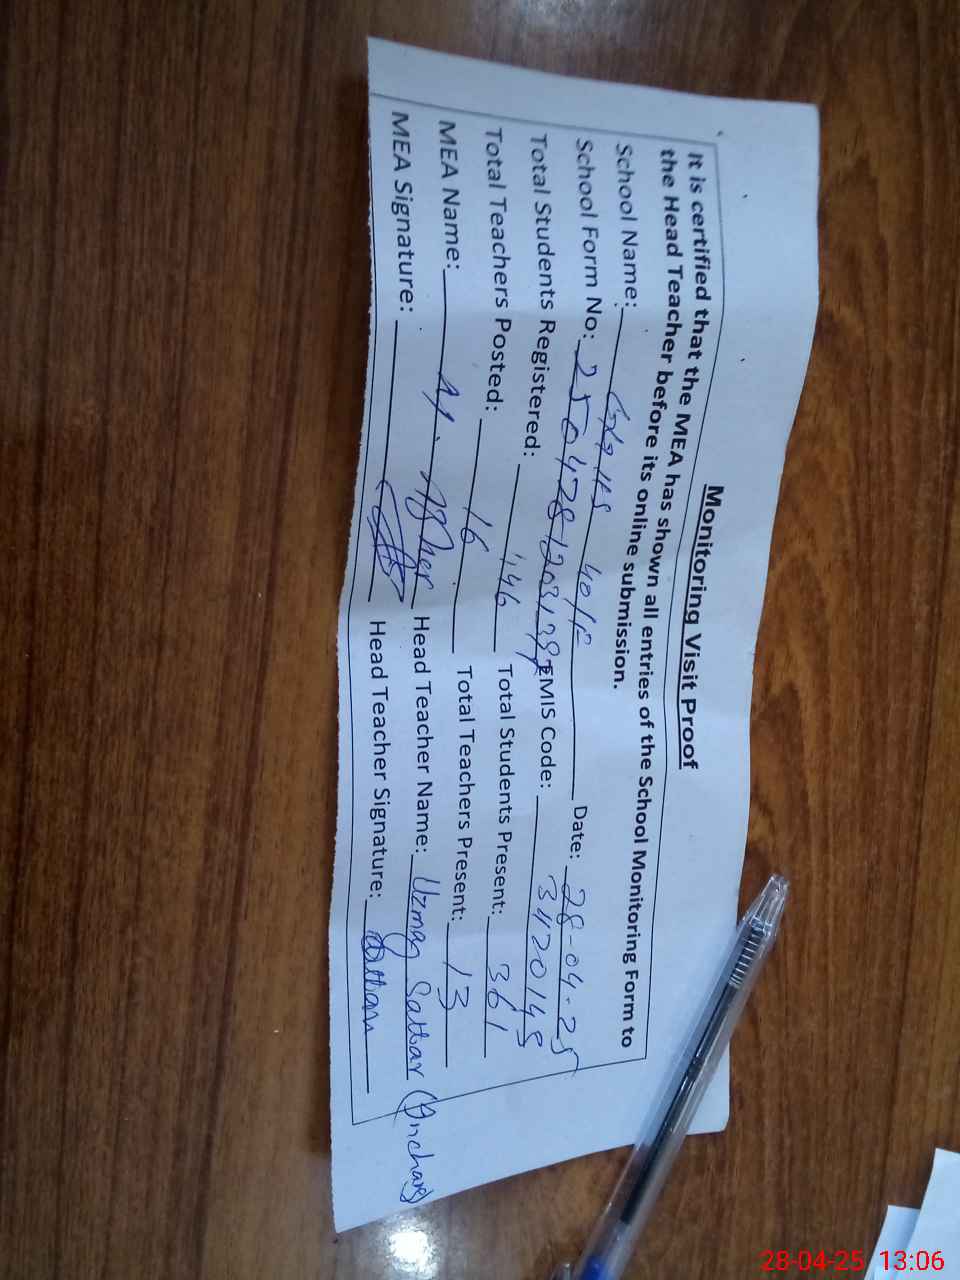 Monitoring Visit Proof
It is certified that the MEA has shown all entries of the School Monitoring Form to
the Head Teacher before its online submission.
School Name: 40/F Date: 28-04-25
School Form No: EMIS Code:
Total Students Registered: 446 Total Students Present: 361
Total Teachers Posted: 16 Total Teachers Present: 13
MEA Name: M. Asgher Head Teacher Name: Uzma Sattar (Incharge)
MEA Signature: Head Teacher Signature:
28-04-25 13:06